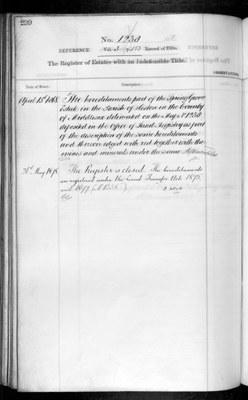 239
No. 1233
REFERENCE
Record of Title.
The Register of Estates with an Indefeasible Title.
Date of Entry.
Description.
April 15th 1868
The hereditaments part of the Spring Grove
Estate in the Parish of Heston in the County
of Middlesex delineated on the Map No 1233
deposited in the Office of Land Registry as part
of the description of the same hereditaments
and thereon edged with red together with the
mines and minerals under the same
The Register is closed. The hereditaments
are registered under the Land Transfer Act 1875,